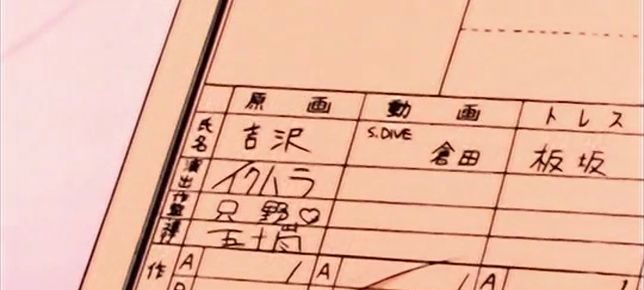 原画 動画 トレス
氏名 吉沢 S.DIVE 倉田 板坂
演出 イクハラ
作監 只野♡
五十嵐
作 A 1 A 1 A 1